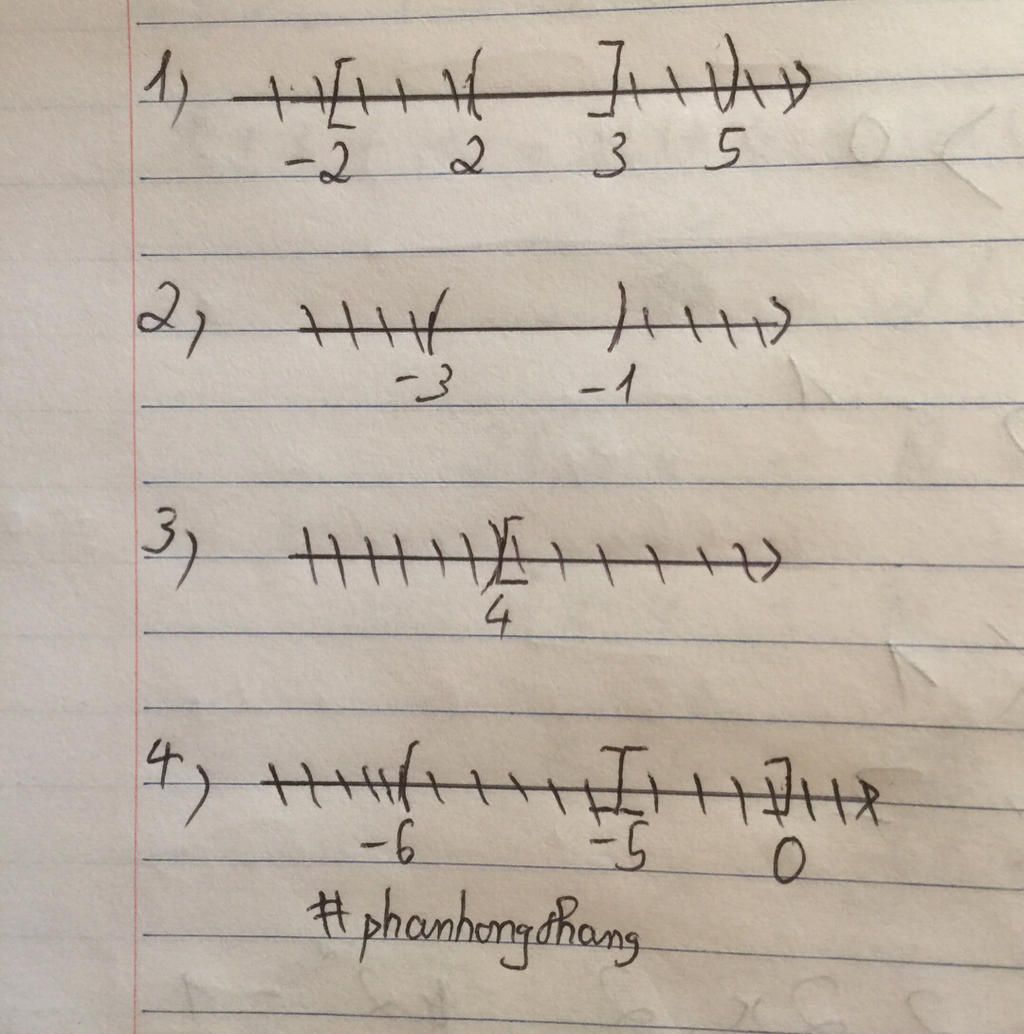 1)
[ ( ] )
-2 2 3 5
2)
( )
-3 -1
3)
) [
4
4)
( ] [ ]
-6 -5 0
#phanhongthang